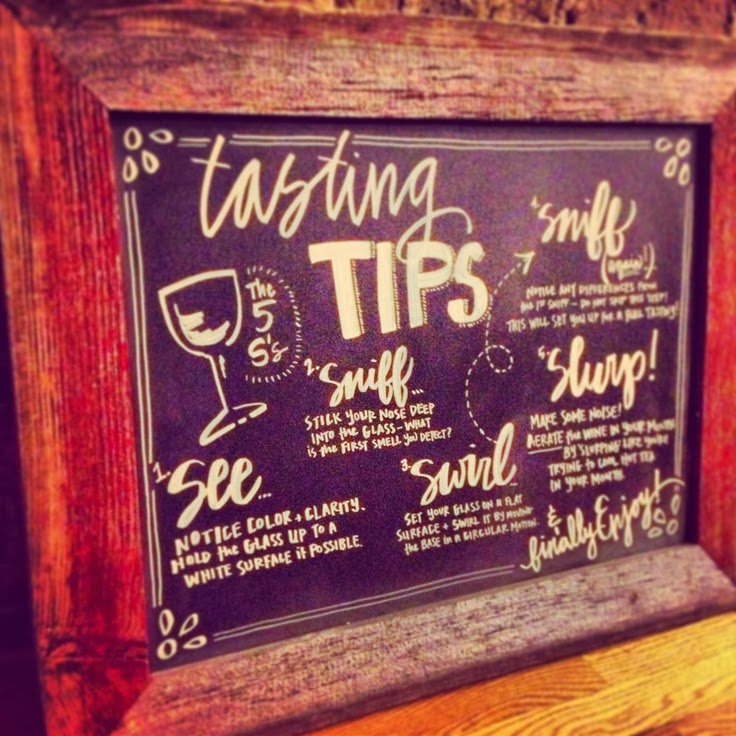 tasting
TIPS
The
5
S's
1. See...
NOTICE COLOR + CLARITY.
HOLD the GLASS UP TO A
WHITE SURFACE if POSSIBLE.
2. Sniff...
STICK YOUR NOSE DEEP
INTO the GLASS - WHAT
is the FIRST SMELL YOU DETECT?
3. Swirl...
SET YOUR GLASS ON A FLAT
SURFACE + SWIRL IT BY MOVING
the BASE in a CIRCULAR MOTION.
4. Sniff
(again!)
NOTICE ANY DIFFERENCES FROM
the 1st SNIFF - DO NOT SKIP THIS STEP!
THIS WILL SET YOU UP FOR A FULL TASTING!
5. Slurp!
MAKE SOME NOISE!
AERATE the WINE IN YOUR MOUTH
BY "SLURPING" LIKE YOU'RE
TRYING TO COOL HOT TEA
IN YOUR MOUTH.
& finally Enjoy!